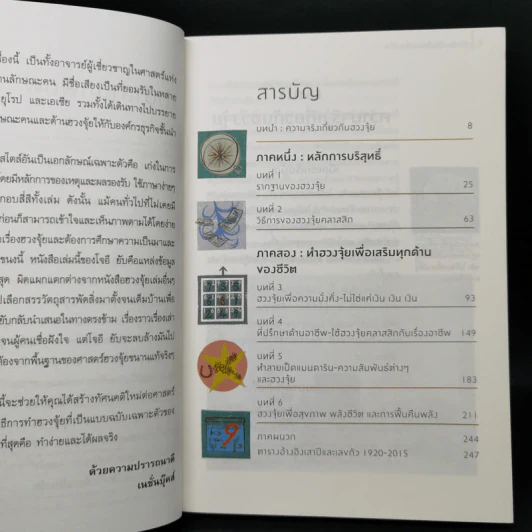 องนี้ เป็นทั้งอาจารย์ผู้เชี่ยวชาญในศาสตร์แห่ง
านลักษณะคน มีชื่อเสียงเป็นที่ยอมรับในหลาย
ยุโรป และเอเชีย รวมทั้งได้เดินทางไปบรรยาย
ษณะคนและด้านฮวงจุ้ยให้กับองค์กรธุรกิจชั้นนำ
สไตล์อันเป็นเอกลักษณ์เฉพาะตัวคือ เก่งในการ
โดยมีหลักการของเหตุและผลรองรับ ใช้ภาษาง่ายๆ
กอบสี่สีทั้งเล่ม ดังนั้น แม้คนทั่วไปที่ไม่เคยมี
ก่อนก็สามารถเข้าใจและเห็นภาพตามได้โดยง่าย
เรื่องฮวงจุ้ยและต้องการศึกษาความเป็นมาและ
ขนงนี้ หนังสือเล่มนี้ของโจอี ยับคือแหล่งข้อมูล
สุด ผิดแผกแตกต่างจากหนังสือฮวงจุ้ยเล่มอื่นๆ
ปเลือกสรรวัตถุสารพัดสิ่งมาตั้งจนเต็มบ้านเพื่อ
ยับกลับนำเสนอในทางตรงข้าม เรื่องราวเรื่องเล่า
จนผู้คนเชื่อฝังใจ แต่โจอี ยับจะลบล้างมันไป
้องจากพื้นฐานของศาสตร์ฮวงจุ้ยขนานแท้จริงๆ
นี้จะช่วยให้คุณได้สร้างทัศนคติใหม่ต่อศาสตร์
ธีการทำฮวงจุ้ยที่เป็นแบบฉบับเฉพาะตัวของ
ที่สุดคือ ทำง่ายและได้ผลจริง
ด้วยความปรารถนาดี
เนชั่นบุ๊คส์
สารบัญ
บทนำ : ความจริงเกี่ยวกับฮวงจุ้ย 8
ภาคหนึ่ง : หลักการบริสุทธิ์
บทที่ 1
รากฐานของฮวงจุ้ย 25
บทที่ 2
วิธีการของฮวงจุ้ยคลาสสิก 63
ภาคสอง : ทำฮวงจุ้ยเพื่อเสริมทุกด้าน
ของชีวิต
บทที่ 3
ฮวงจุ้ยเพื่อความมั่งคั่ง-ไม่ใช่แค่เงิน เงิน เงิน 93
บทที่ 4
ที่ปรึกษาด้านอาชีพ-ใช้ฮวงจุ้ยคลาสสิกกับเรื่องอาชีพ 149
บทที่ 5
ทำลายเป็ดแมนดาริน-ความสัมพันธ์ต่างๆ
และฮวงจุ้ย 183
บทที่ 6
ฮวงจุ้ยเพื่อสุขภาพ พลังชีวิต และการฟื้นคืนพลัง 211
ภาคผนวก 244
ตารางอ้างอิงเสาปีและเลขกัว 1920-2015 247
9